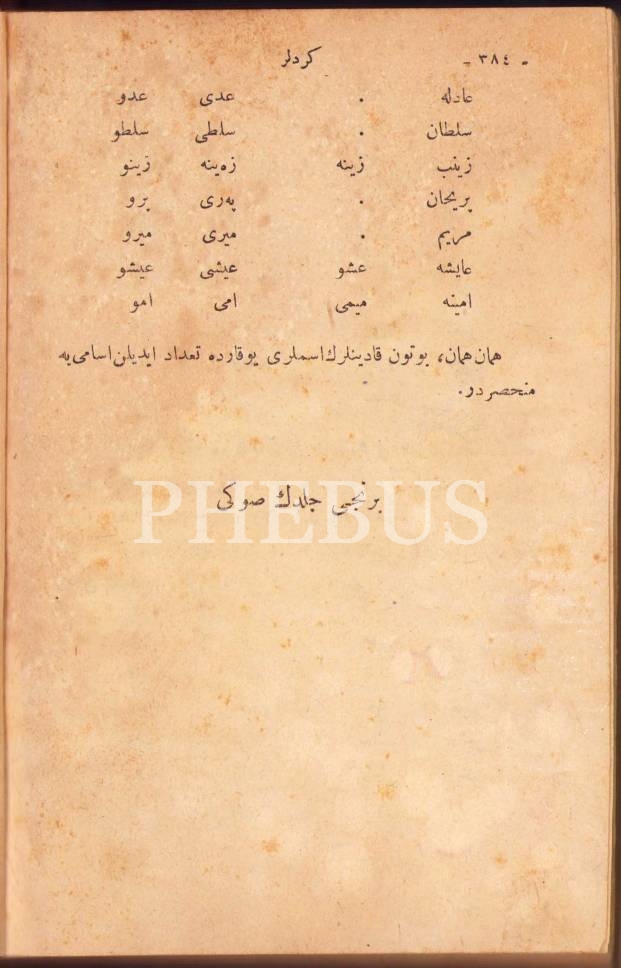 - ٣٨٤ - كردلر
عادله . عدى عدو
سلطان . سلطى سلطو
زينب زينه زەينه زينو
پريحان . پەرى پرو
مريم . ميرى ميرو
عايشه عشو عيشى عيشو
امينه ميمى امى امو
همان همان، بوتون قادينلرك اسملرى يوقارده تعداد ايديلن اسامى يه
منحصر در.
برنجى جلدك صوكى
PHEBUS